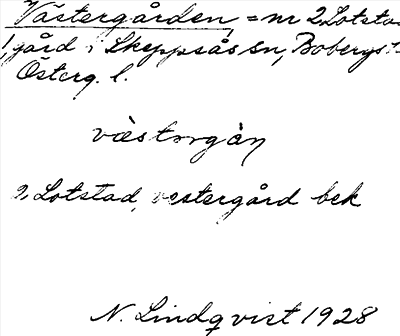 Västergården, = nr 2 Lotstad
1, gård i Skeppsås sn, Bobergs
Österg. l.
västərgàn
2, Lotstad, vestergård bek
N. Lindqvist 1928